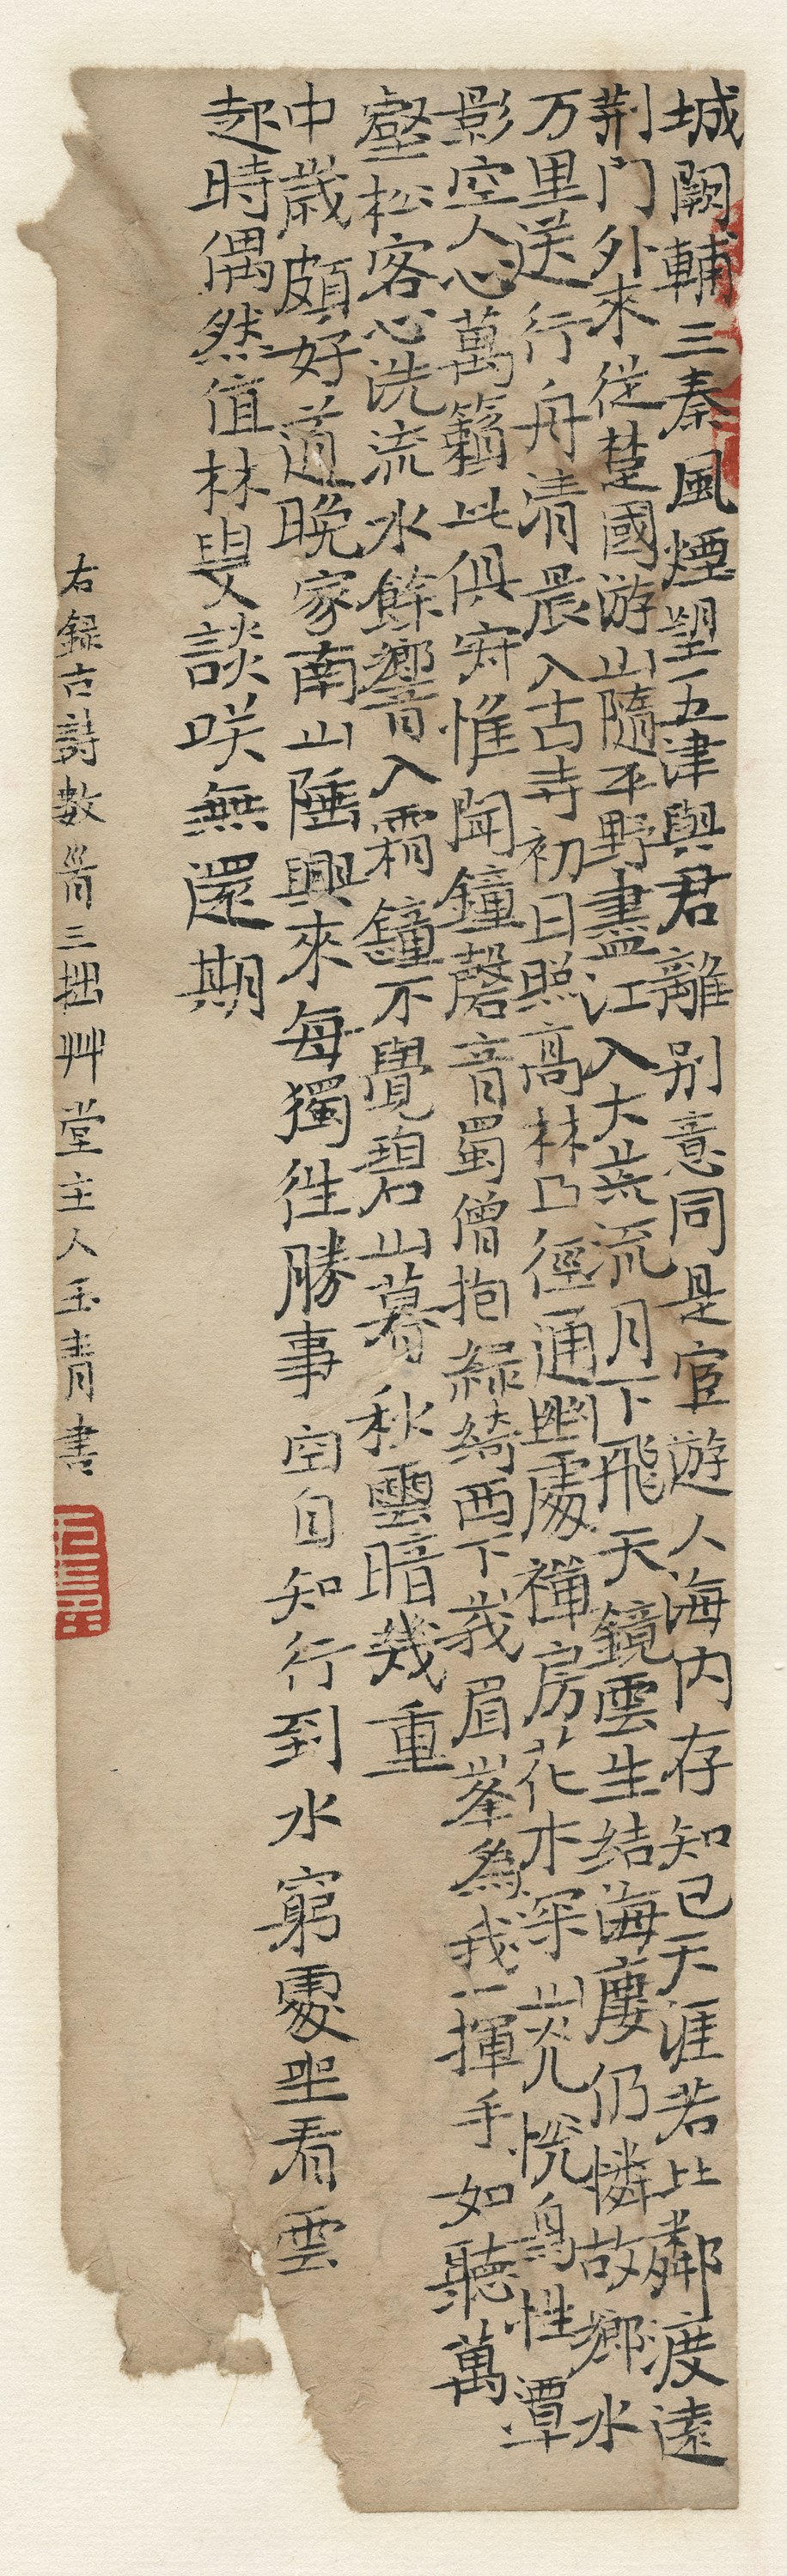 城闕輔三秦風煙望五津與君離別意同是宦遊人海内存知己天涯若比鄰渡遠
荆門外來從楚國游山隨平野盡江入大荒流月下飛天鏡雲生结海廔仍憐故鄉水
万里送行舟清晨入古寺初日照高林凸徑通幽處禅房花木深山光悦鳥性潭
影空人心萬籟此俱寂惟聞鐘磬音蜀僧抱緑綺西下峩眉峯為我一揮手如聽萬
壑松客心洗流水餘響入霜鐘不覺碧山暮秋雲暗幾重
中歲頗好道晚家南山陲興來每獨往勝事空自知行到水窮處坐看雲
起時偶然值林叟談咲無還期
右録古詩數首三拙艸堂主人玉青書